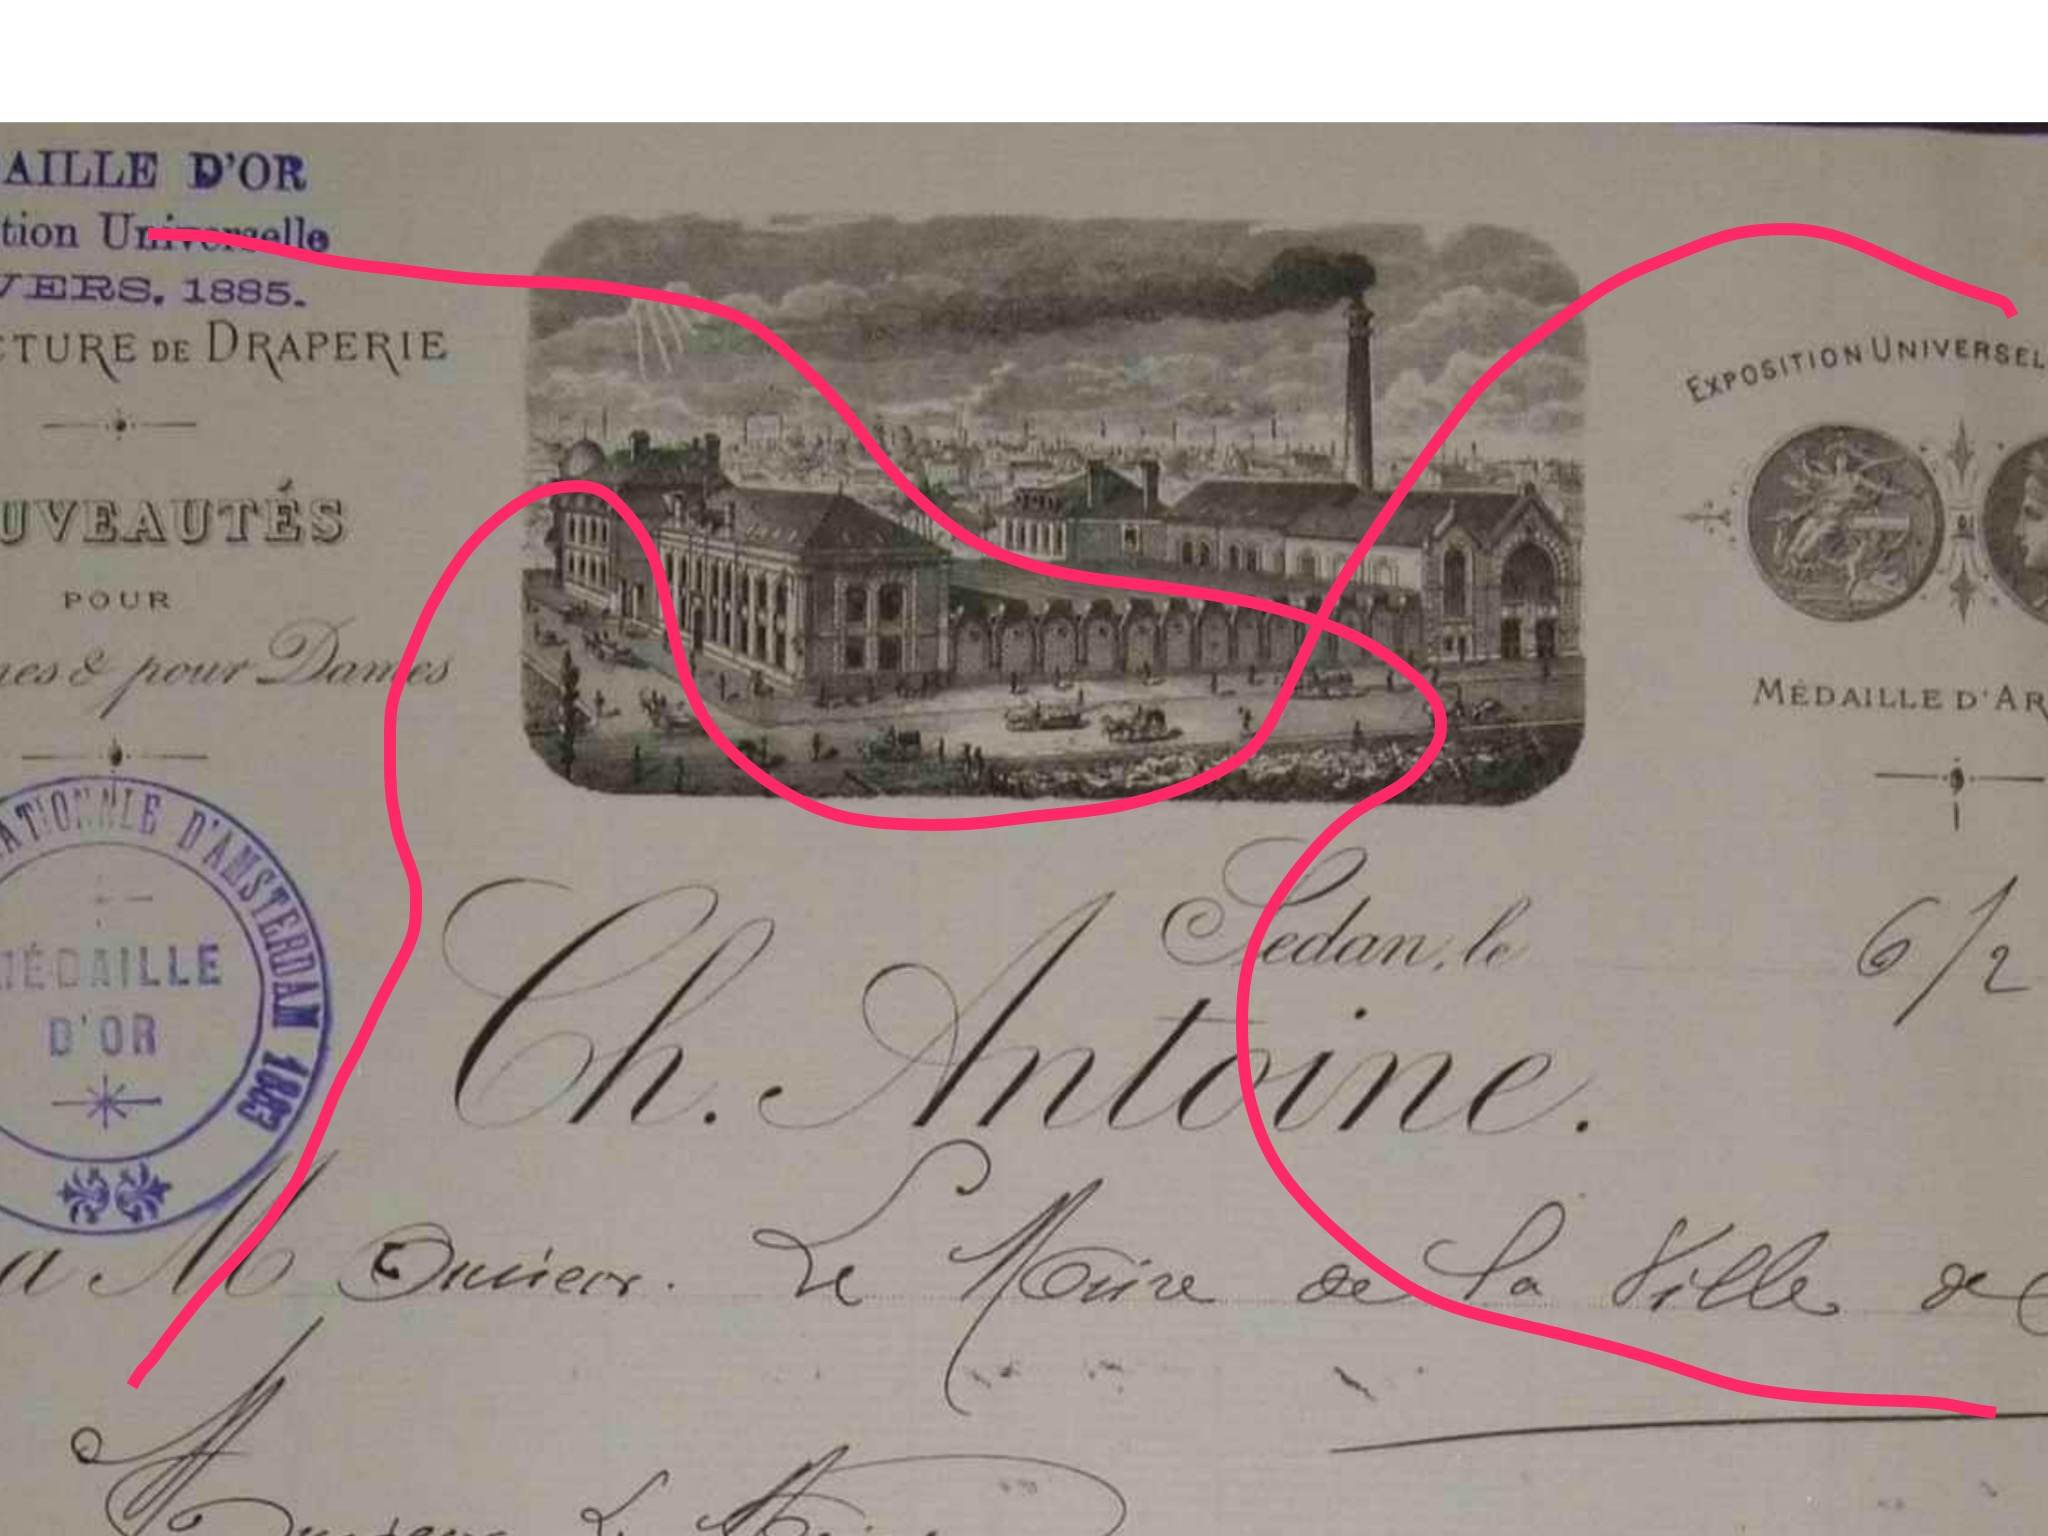 AILLE D'OR
tion Universelle
VERS. 1885.
CTURE DE DRAPERIE
UVEAUTÉS
POUR
nes & pour Dames
ATIONALE D'AMSTERDAM 1883
MÉDAILLE
D'OR
EXPOSITION UNIVERSEL
MÉDAILLE D'AR
Sedan, le 6/2
Ch. Antoine.
a M Le Maire de la Ville de